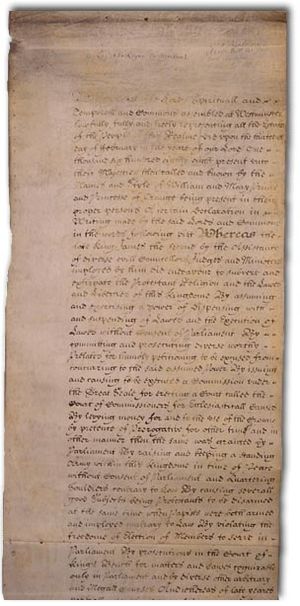 the Lords Spirituall and
Temporall and Commons assembled at Westminster
lawfully fully and freely representing all the Estates
of the People of this Realme did upon the thirteenth
day of February in the yeare of our Lord One
thousand six hundred eighty eight present unto
their Majesties then called and known by the
Names and Style of William and Mary Prince
and Princesse of Orange being present in their
proper Persons a certein Declaration in
Writing made by the said Lords and Commons
in the words following vizt Whereas the
late King James the second by the Assistance
of diverse evill Councellors Judges and Ministers
imployed by him did endeavor to subvert and
extirpate the Protestant Religion and the Lawes
and Liberties of this Kingdome By assuming
and exercising a Power of Dispensing with
and suspending of Lawes and the Execution of
Lawes without Consent of Parliament By
committing and prosecuting diverse worthy
Prelates for humbly petitioning to be excused from
concurring to the said assumed Power By issuing
and causing to be executed a Commission under
the Great Seale for erecting a Court called the
Court of Commissioners for Ecclesiasticall Causes
By levying money for and to the use of the Crowne
by pretence of Prerogative for other time and in
other manner then the same was granted by
Parliament By raising and keeping a standing
Army within this Kingdome in time of Peace
without Consent of Parliament and Quartering
Souldiers contrary to Law By causing severall
good Subjects being Protestants to be disarmed
at the same time when Papists were both armed
and imployed contrary to Law By violating the
freedome of Election of Members to serve in
Parliament By prosecutions in the Court of
Kings Bench for matters and causes cognizable
only in Parliament and by diverse other arbitrary
and illegall courses And whereas of late yeares